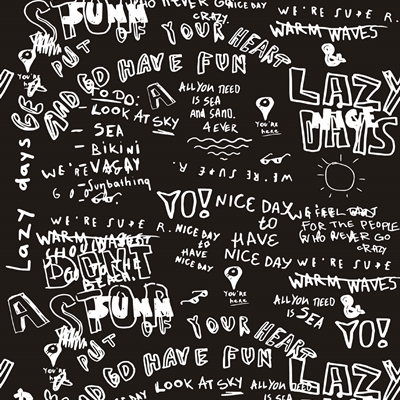 NICE DAY
CRAZY.
SUNN
OF YOUR HEART
PUT
AND GO HAVE FUN
WE'RE SU*E R.
WARM WAVES
&
YOU'RE
here
GET
TO DO:
LOOK AT SKY
- SEA
- BIKINI
- VACAY
- Sunbathing
A
ALL YOU NEED
IS SEA
AND SAND.
4 EVER
YOU'RE
here
LAZY
DAYS
NICE
Lazy days
WE'RE SU*E R.
YO!
NICE DAY
to
HAVE
NICE DAY
FOR THE PEOPLE
WHO NEVER GO
CRAZY
WE'RE SU*E R.
NICE DAY
to
HAVE
NICE DAY
WARM WAVES
WE'RE SU*E R.
WARM WAVES
DON'T
A STOP
SUNN
YOU'RE
here
ALL YOU NEED
IS SEA
&
YO!
OF YOUR HEART
PUT
YOU'RE
here
AND GO HAVE FUN
LOOK AT SKY
ALL YOU NEED
IS SEA
LAZY